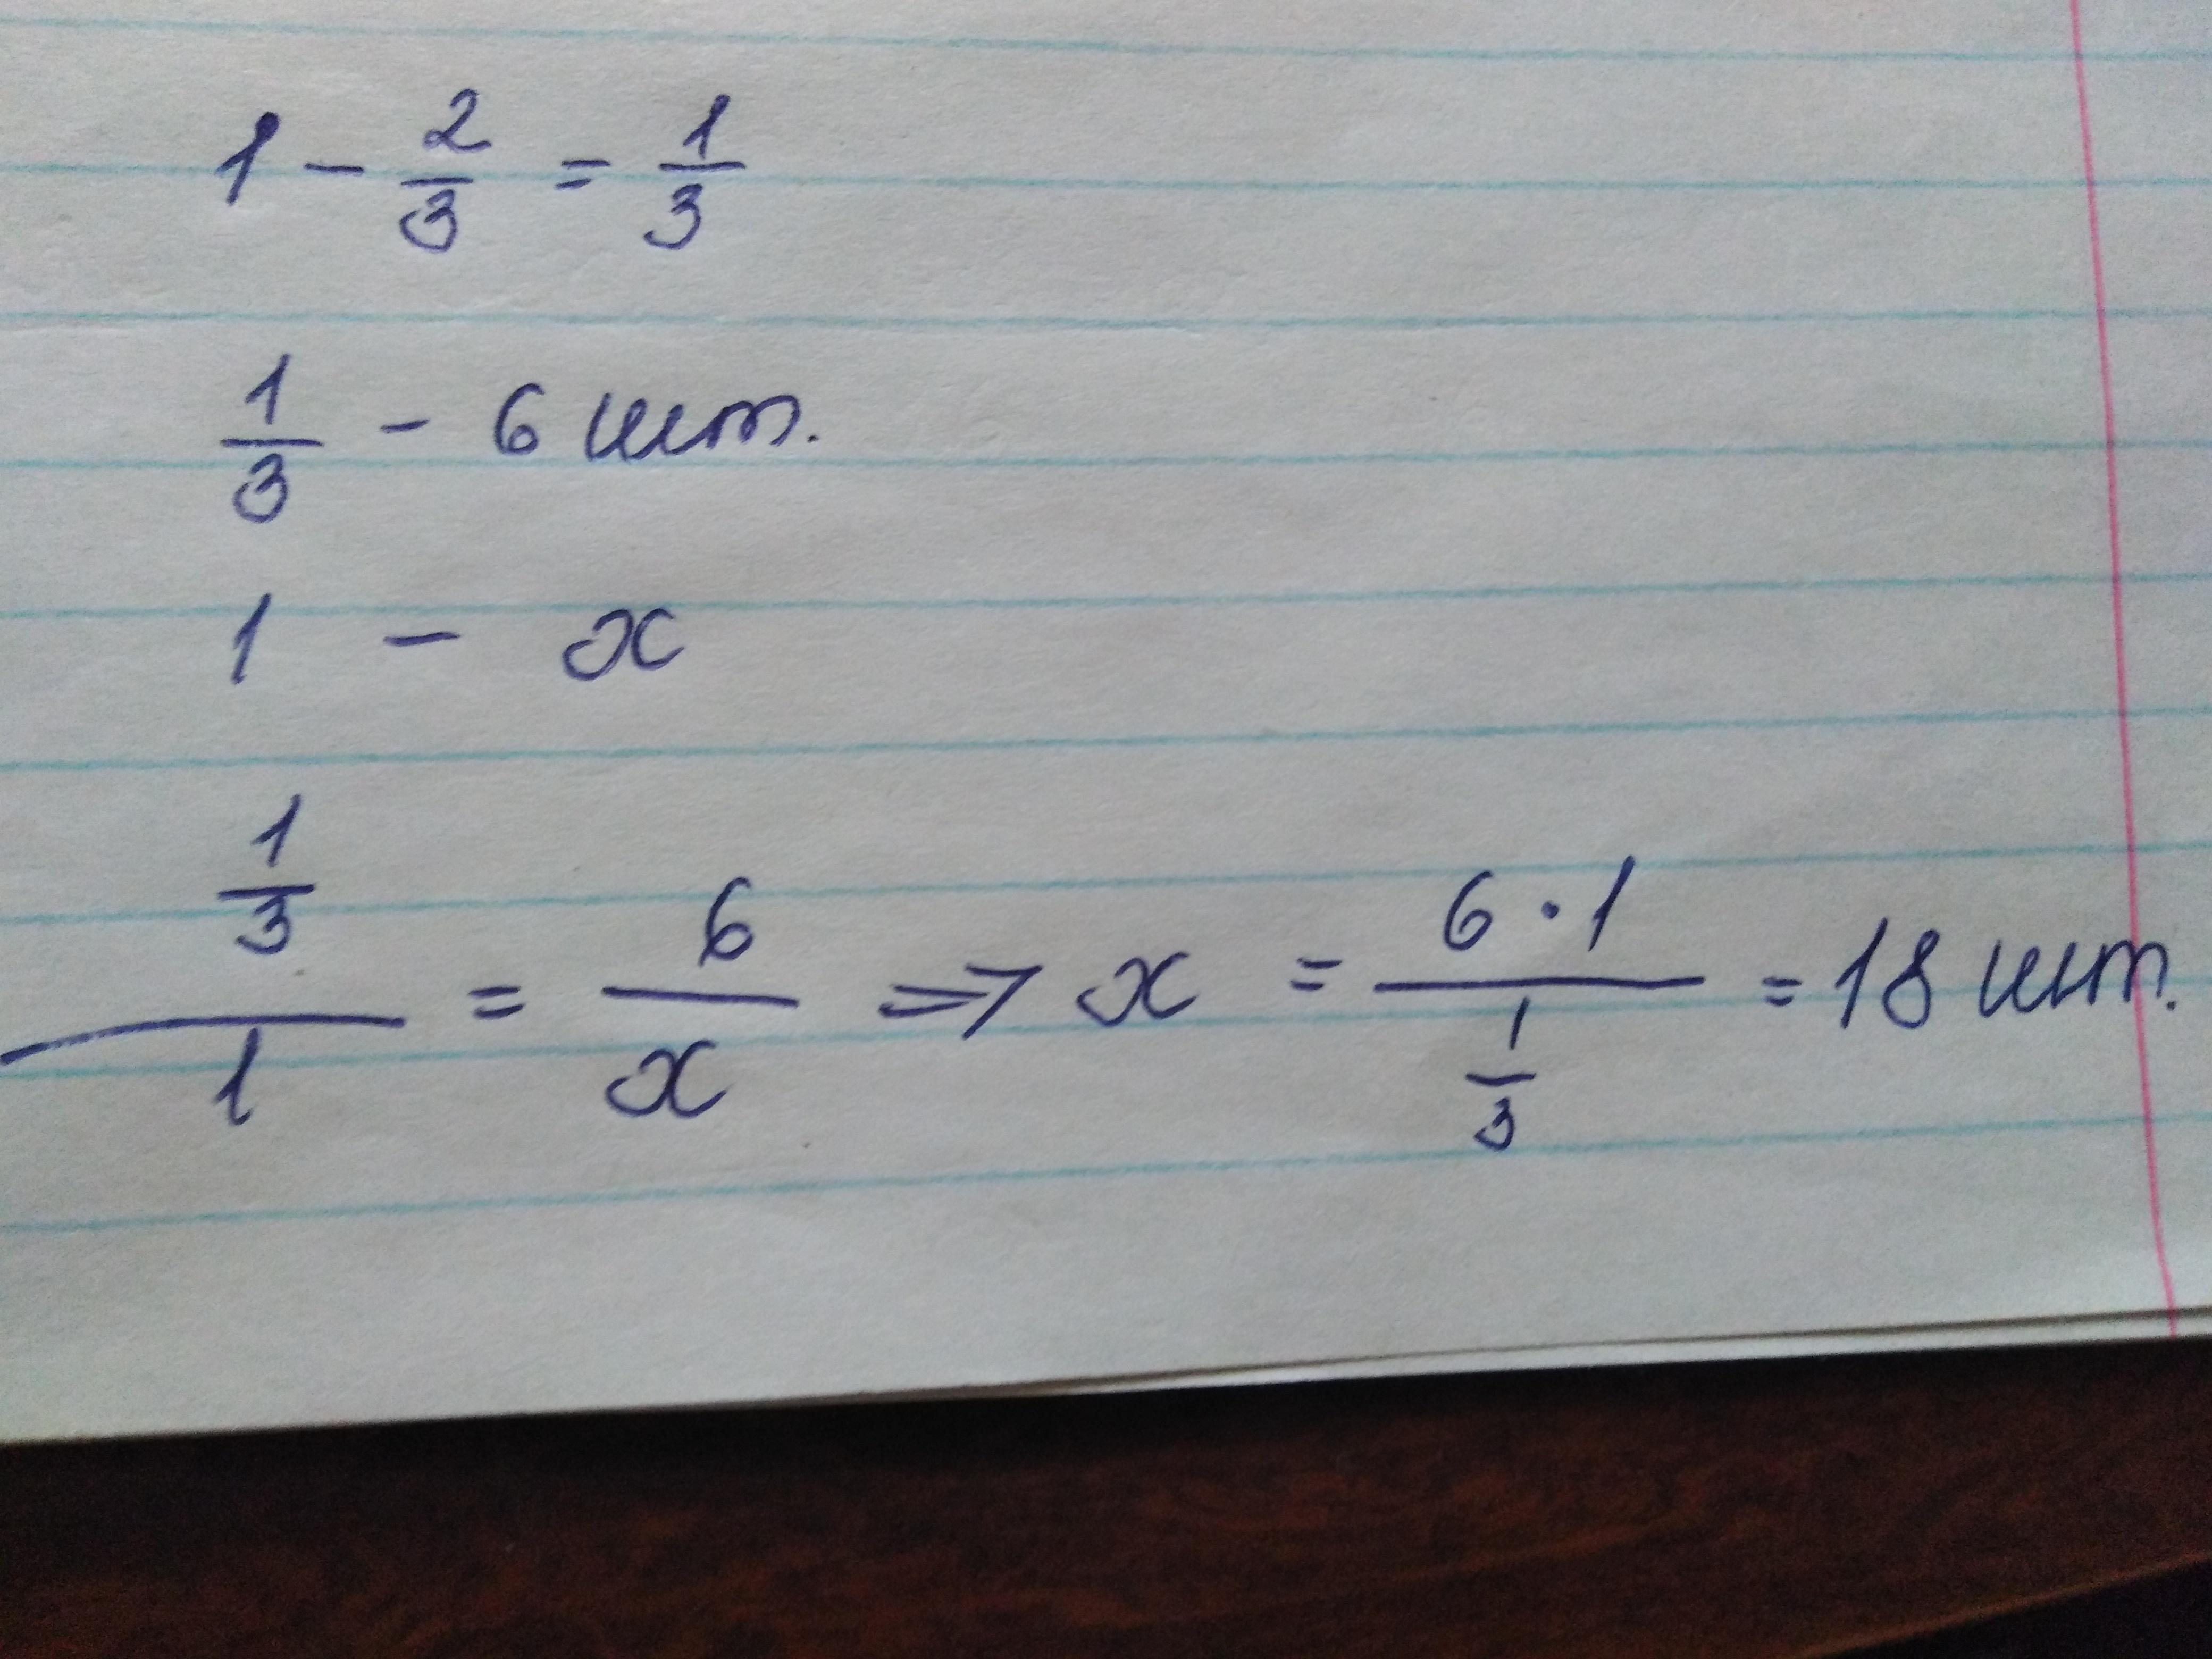 1 - 2/3 = 1/3
1/3 - 6 шт.
1 - x
(1/3)/1 = 6/x => x = (6 · 1)/(1/3) = 18 шт.